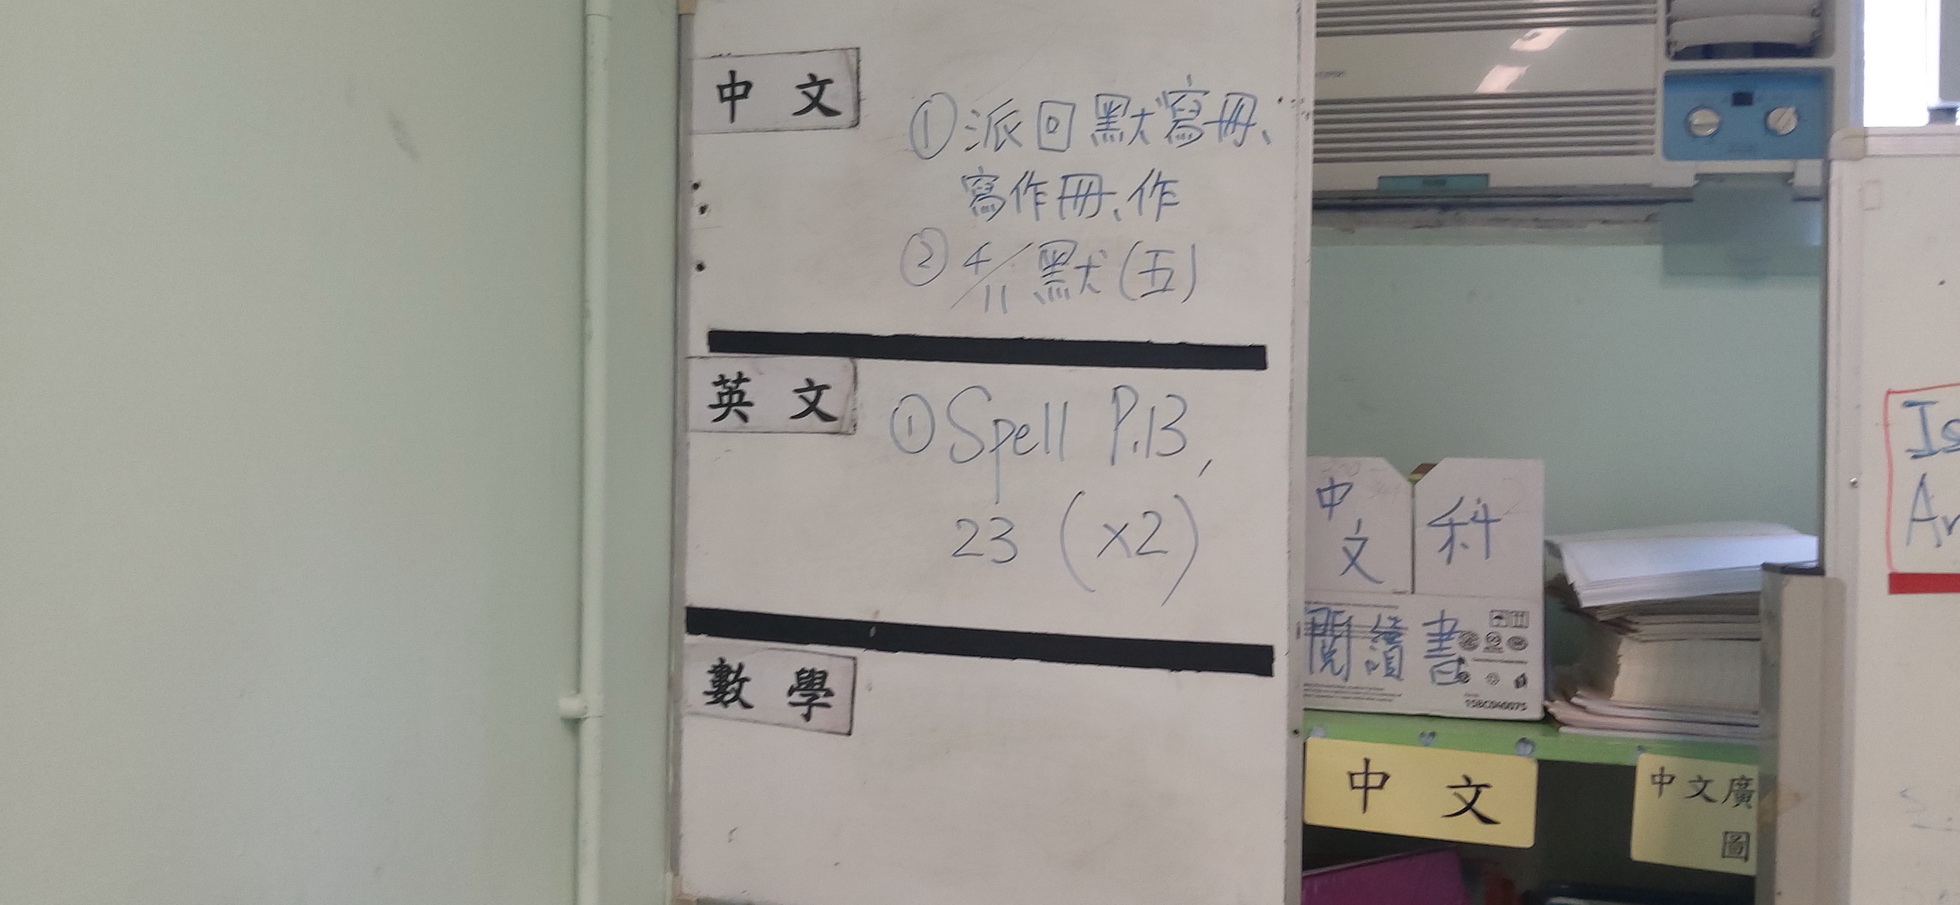 中 文
①派回默寫冊、
寫作冊、作
② 4/11 默(五)
英 文
①Spell P.13,
23 (×2)
數 學
中文 科
閱讀書
15BC040075
中 文
中文廣
圖
Is
Ar